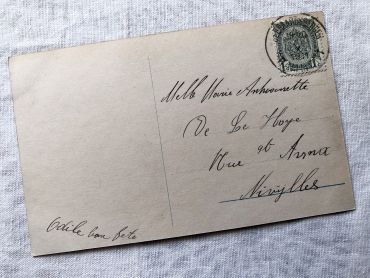 Melle Marie Antoinette
De Le Hoye
Rue St Anna
Nivylles
Odile bon fete